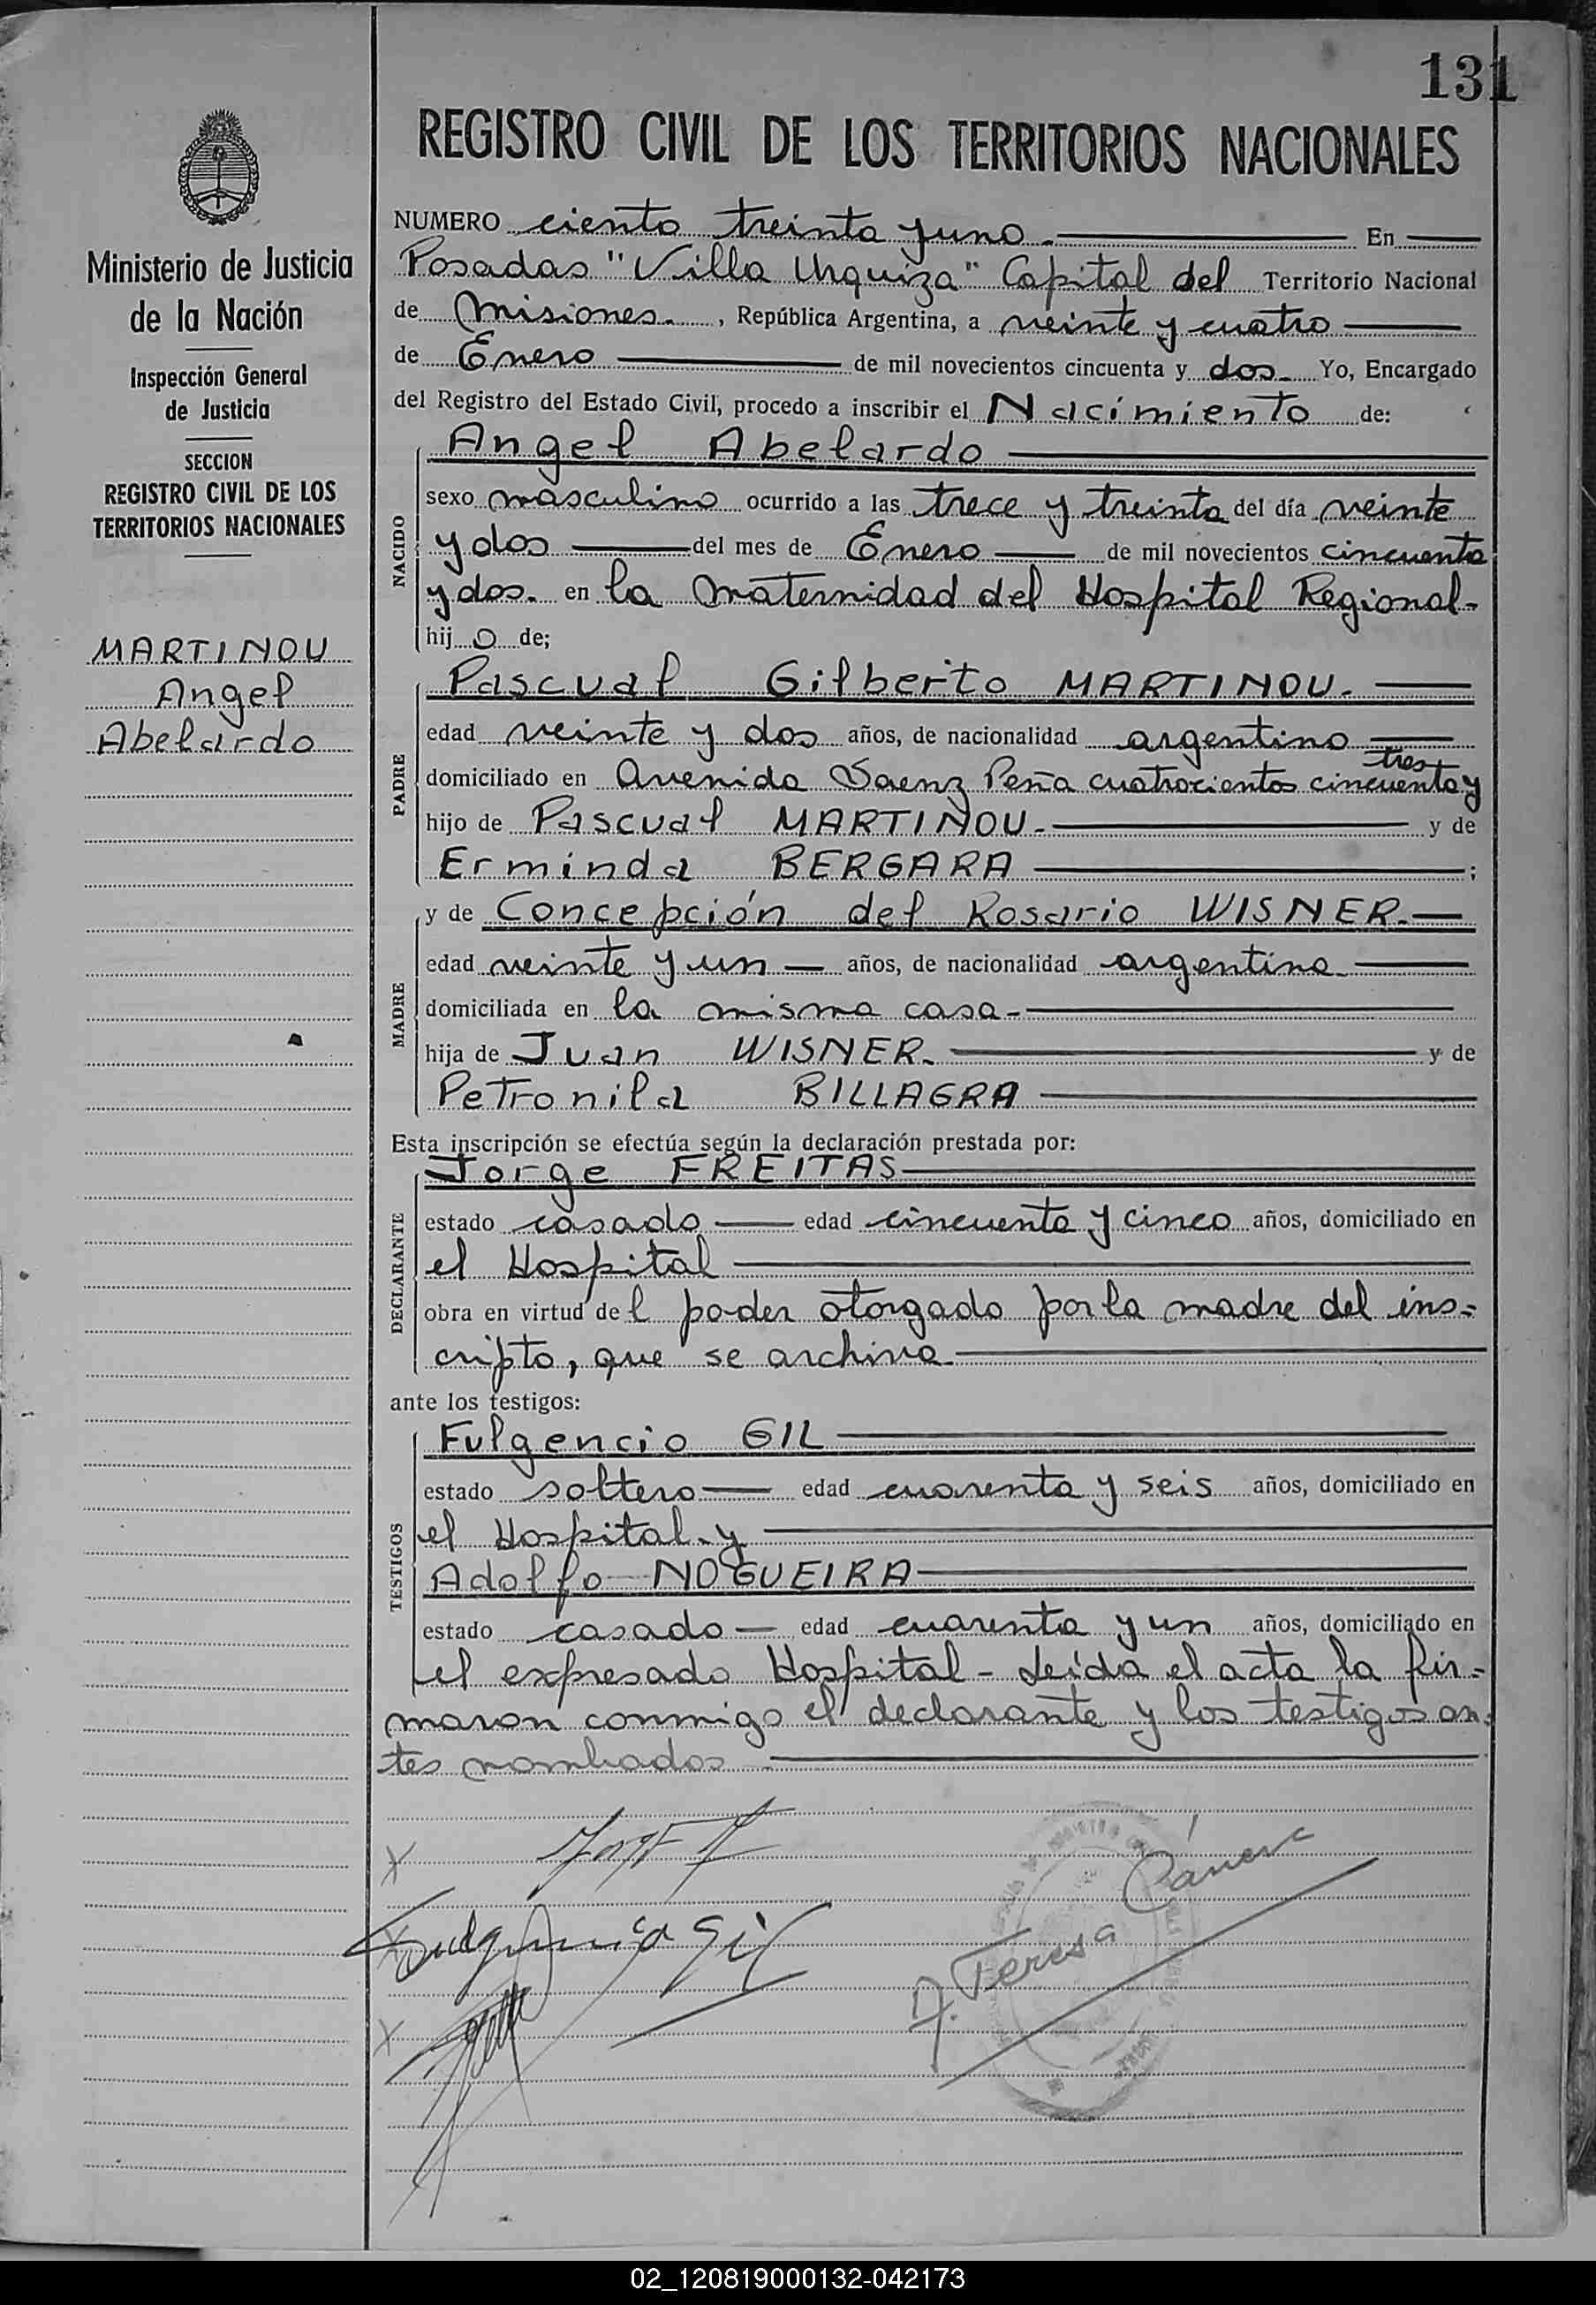 131
REGISTRO CIVIL DE LOS TERRITORIOS NACIONALES
Ministerio de Justicia
de la Nación
Inspección General
de Justicia
SECCION
REGISTRO CIVIL DE LOS
TERRITORIOS NACIONALES
MARTINOU
Angel
Abelardo
NUMERO ciento treinta y uno. En
Posadas "Villa Urquiza" Capital del Territorio Nacional
de Misiones. , República Argentina, a veinte y cuatro
de Enero de mil novecientos cincuenta y dos Yo, Encargado
del Registro del Estado Civil, procedo a inscribir el Nacimiento de:
NACIDO
Angel Abelardo
sexo masculino ocurrido a las trece y treinta del día veinte
y dos del mes de Enero de mil novecientos cincuenta
y dos. en la Maternidad del Hospital Regional-
hijo de;
PADRE
Pascual Gilberto MARTINOU.
edad veinte y dos años, de nacionalidad argentino
tres
domiciliado en Avenida Saenz Peña cuatrocientos cincuenta y
hijo de Pascual MARTINOU. y de
Erminda BERGARA ;
MADRE
y de Concepción del Rosario WISNER.
edad veinte y un años, de nacionalidad argentina
domiciliada en la misma casa-
hija de Juan WISNER. y de
Petronila BILLAGRA
Esta inscripción se efectúa según la declaración prestada por:
DECLARANTE
Jorge FREITAS
estado casado edad cincuenta y cinco años, domiciliado en
el Hospital
obra en virtud del poder otorgado por la madre del ins-
cripto, que se archiva
ante los testigos:
TESTIGOS
Fulgencio GIL
estado soltero edad cuarenta y seis años, domiciliado en
el Hospital-y
Adolfo NOGUEIRA
estado casado edad cuarenta y un años, domiciliado en
el expresado Hospital- Leída el acta la fir-
maron conmigo el declarante y los testigos an-
tes nombrados
X
X Fulgencio Gil
X
Teresa
02_120819000132-042173